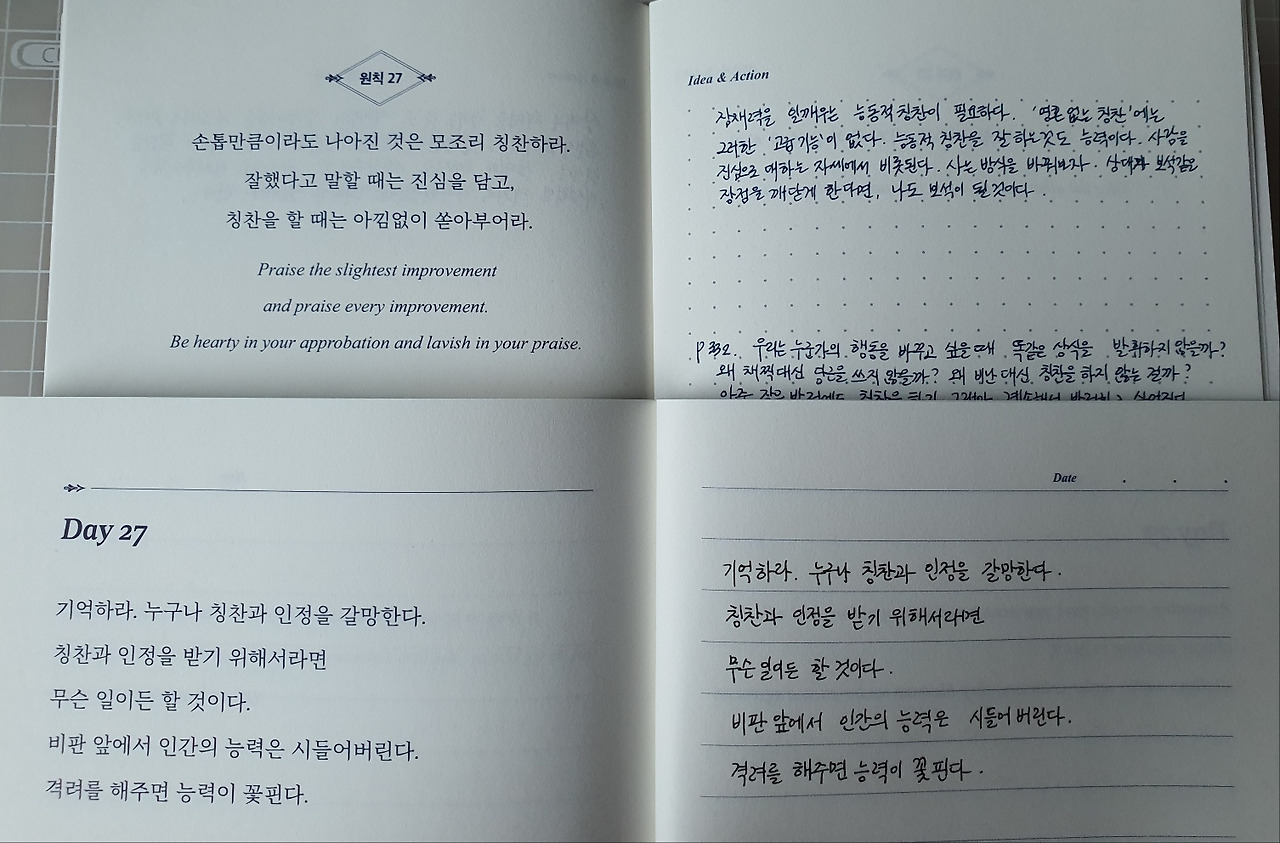 원칙 27
손톱만큼이라도 나아진 것은 모조리 칭찬하라.
잘했다고 말할 때는 진심을 담고,
칭찬을 할 때는 아낌없이 쏟아부어라.
Praise the slightest improvement
and praise every improvement.
Be hearty in your approbation and lavish in your praise.
Idea & Action
잠재력을 일깨우는 능동적 칭찬이 필요하다. '영혼 없는 칭찬'에는
그러한 '고급기능'이 없다. 능동적 칭찬을 잘 하는것도 능력이다. 사람을
진심으로 대하는 자세에서 비롯된다. 사는 방식을 바꿔보자. 상대가 보석같은
장점을 깨닫게 한다면, 나도 보석이 될 것이다.
P 332. 우리는 누군가의 행동을 바꾸고 싶을 때에 똑같은 상식을 발휘하지 않을까?
왜 채찍대신 당근을 쓰지 않을까? 왜 비난 대신 칭찬을 하지 않는 걸까?
아주 작은 발전에도 칭찬을 하기
Day 27
기억하라. 누구나 칭찬과 인정을 갈망한다.
칭찬과 인정을 받기 위해서라면
무슨 일이든 할 것이다.
비판 앞에서 인간의 능력은 시들어버린다.
격려를 해주면 능력이 꽃핀다.
Date . . .
기억하라. 누구나 칭찬과 인정을 갈망한다.
칭찬과 인정을 받기 위해서라면
무슨 일이든 할 것이다.
비판 앞에서 인간의 능력은 시들어버린다.
격려를 해주면 능력이 꽃핀다.